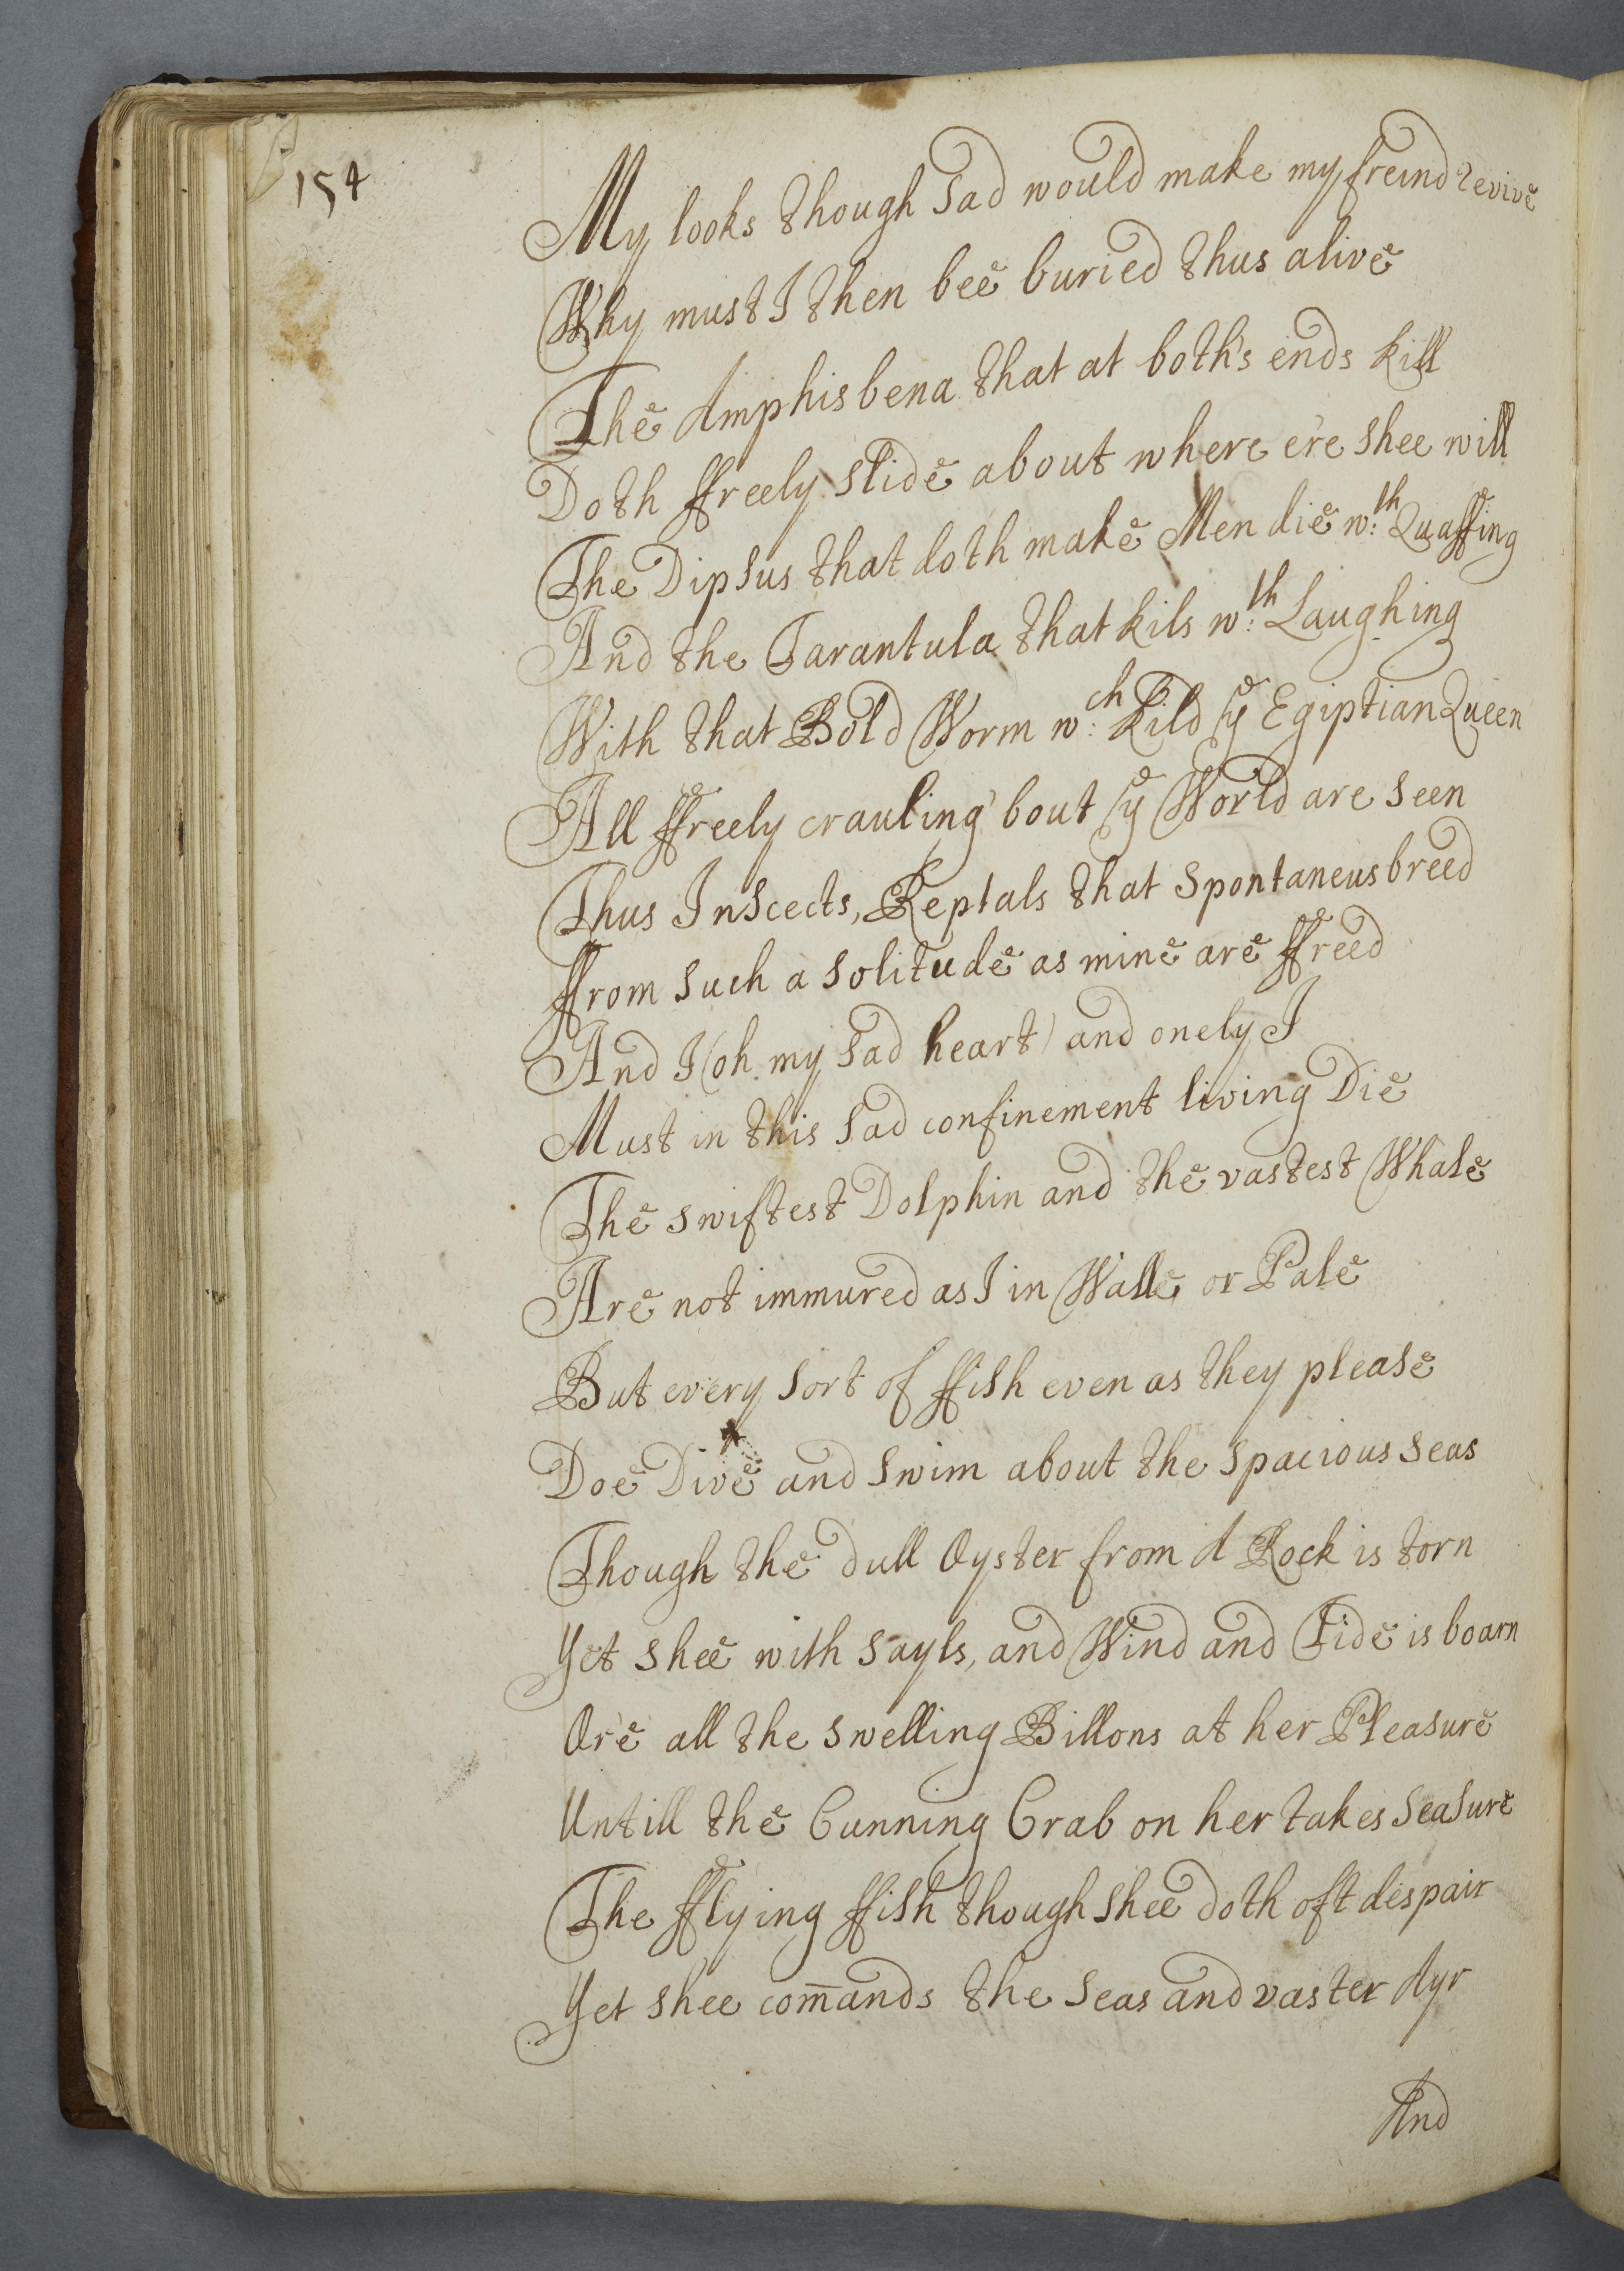 154
My looks though sad would make my freind revive
Why must I then bee buried thus alive
The Amphisbena that at both's ends kill
Doth ffreely slide about where e're shee will
The Dipsus that doth make Men die w:th Quaffing
And the Tarantula that kils w:th Laughing
With that Bold Worm w:ch kild ye Egiptian Queen
All ffreely crauling 'bout ye World are seen
Thus Inscects, Reptals that spontaneus breed
ffrom such a solitude as mine are ffreed
And I (oh my sad heart) and onely I
Must in this sad confinement living Die
The swiftest Dolphin and the vastest Whale
Are not immured as I in Walle or Pale
But every sort of ffish even as they please
Doe Dive and swim about the spacious seas
Though the dull Oyster from A Rock is torn
Yet shee with sayls, and Wind and Tide is boarn
Or'e all the swelling Billons at her Pleasure
Untill the Cunning Crab on her takes seasure
The fflying ffish though shee doth oft despair
Yet shee com̅ands the seas and vaster Ayr
And